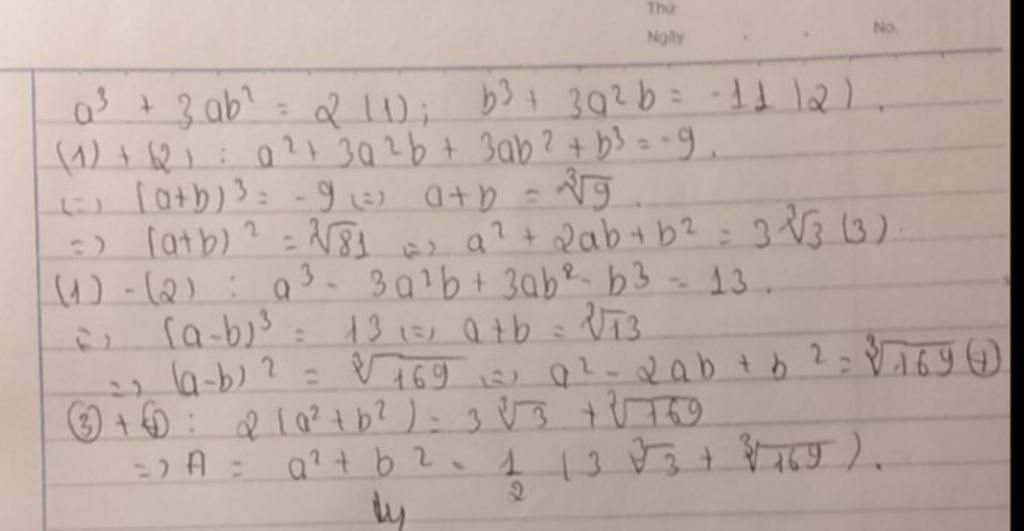 Thứ
Ngày . . No.
a³ + 3ab² = 2 (1); b³ + 3a²b = -11 (2).
(1) + (2) : a² + 3a²b + 3ab² + b³ = -9.
(=) (a+b)³ = -9 (=) a+b = ∛9.
=) (a+b)² = ∛81 (=) a² + 2ab + b² = 3∛3 (3).
(1) - (2) : a³ - 3a²b + 3ab² - b³ = 13.
(=) (a-b)³ = 13 (=) a+b = ∛13
=) (a-b)² = ∛169 (=) a² - 2ab + b² = ∛169 (4)
(3) + (4) : 2(a² + b²) = 3∛3 + ∛169
=) A = a² + b² = 1/2 (3∛3 + ∛169).